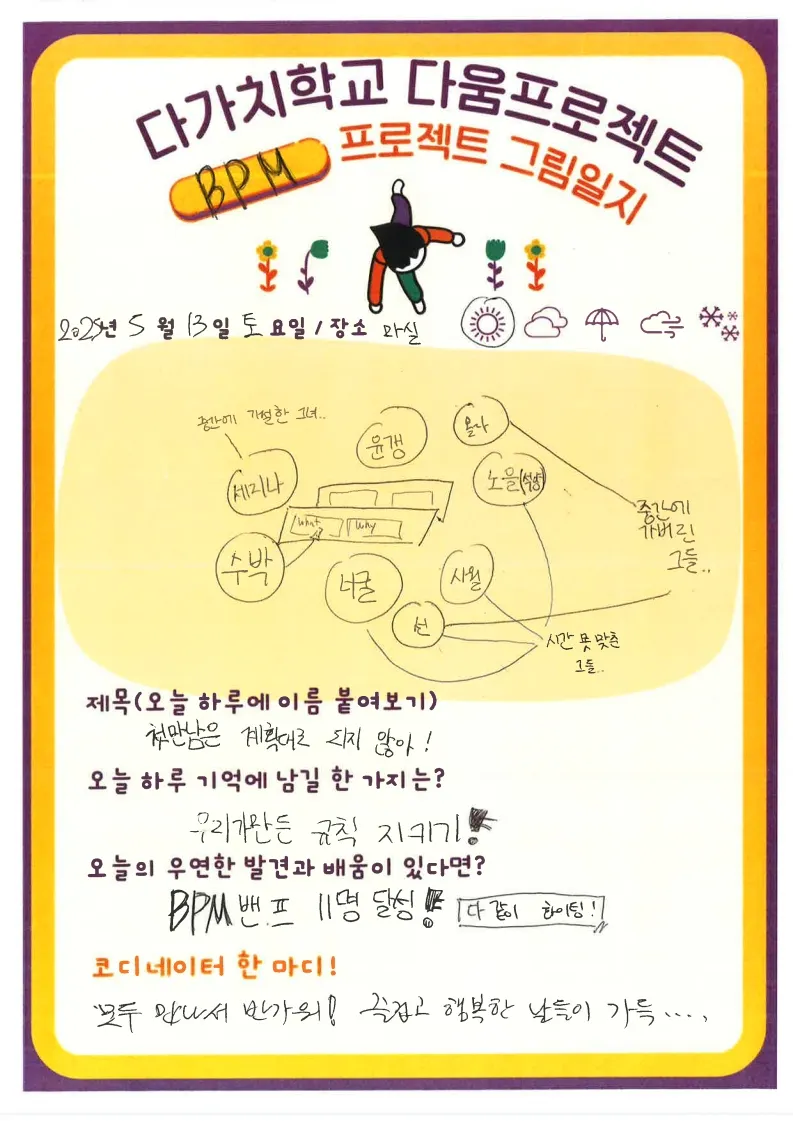 다가치학교 다움프로젝트
BPM 프로젝트 그림일지
2025년 5월 13일 토요일 / 장소 마실
중간에 가버린 그녀..
윤갱
올라
세리나
노을(석양)
What?
Why
중간에
가버린
그들..
수박
너굴
사월
선
시간 못 맞춘
그들..
제목(오늘 하루에 이름 붙여보기)
첫만남은 계획대로 되지 않아!
오늘 하루 기억에 남길 한 가지는?
우리가 만든 규칙 지키기!
오늘의 우연한 발견과 배움이 있다면?
BPM 밴.프 11명 달성! 다 같이 화이팅!
코디네이터 한 마디!
모두 만나서 반가워! 즐겁고 행복한 날들이 가득....,